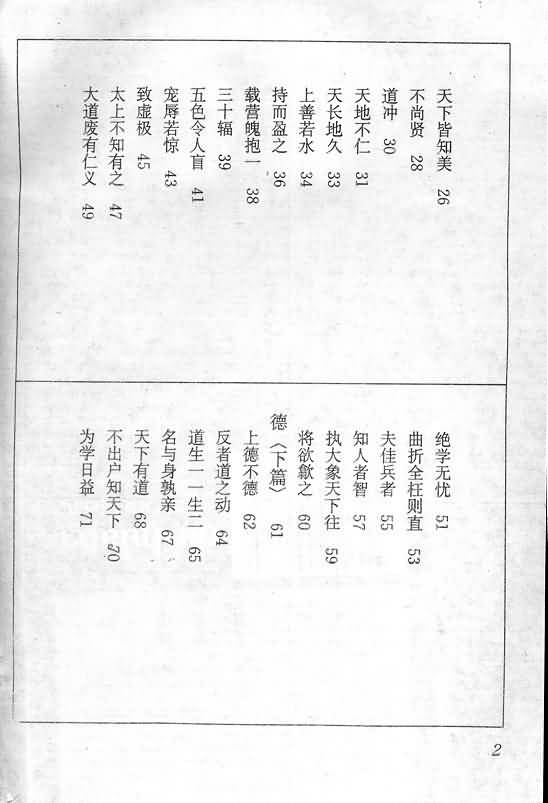 天下皆知美 26
不尚贤 28
道冲 30
天地不仁 31
天长地久 33
上善若水 34
持而盈之 36
载营魄抱一 38
三十辐 39
五色令人盲 41
宠辱若惊 43
致虚极 45
太上不知有之 47
大道废有仁义 49
绝学无忧 51
曲折全枉则直 53
夫佳兵者 55
知人者智 57
执大象天下往 59
将欲歙之 60
德〈下篇〉 61
上德不德 62
反者道之动 64
道生一一生二 65
名与身孰亲 67
天下有道 68
不出户知天下 70
为学日益 71
2